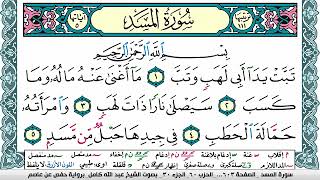 ترتيبها ١١١
سُورَةُ المَسَدِ
آياتها ٥
بِسْمِ ٱللَّهِ ٱلرَّحْمَٰنِ ٱلرَّحِيمِ
تَبَّتْ يَدَآ أَبِى لَهَبٍ وَتَبَّ ١ مَآ أَغْنَىٰ عَنْهُ مَالُهُۥ وَمَا
كَسَبَ ٢ سَيَصْلَىٰ نَارًا ذَاتَ لَهَبٍ ٣ وَٱمْرَأَتُهُۥ
حَمَّالَةَ ٱلْحَطَبِ ٤ فِى جِيدِهَا حَبْلٌ مِّن مَّسَدٍۭ ٥
سورة المسد الصفحة ٦٠٣ الحزب ٦٠ الجزء ٣٠ بصوت الشيخ عبد الله كامل برواية حفص عن عاصم